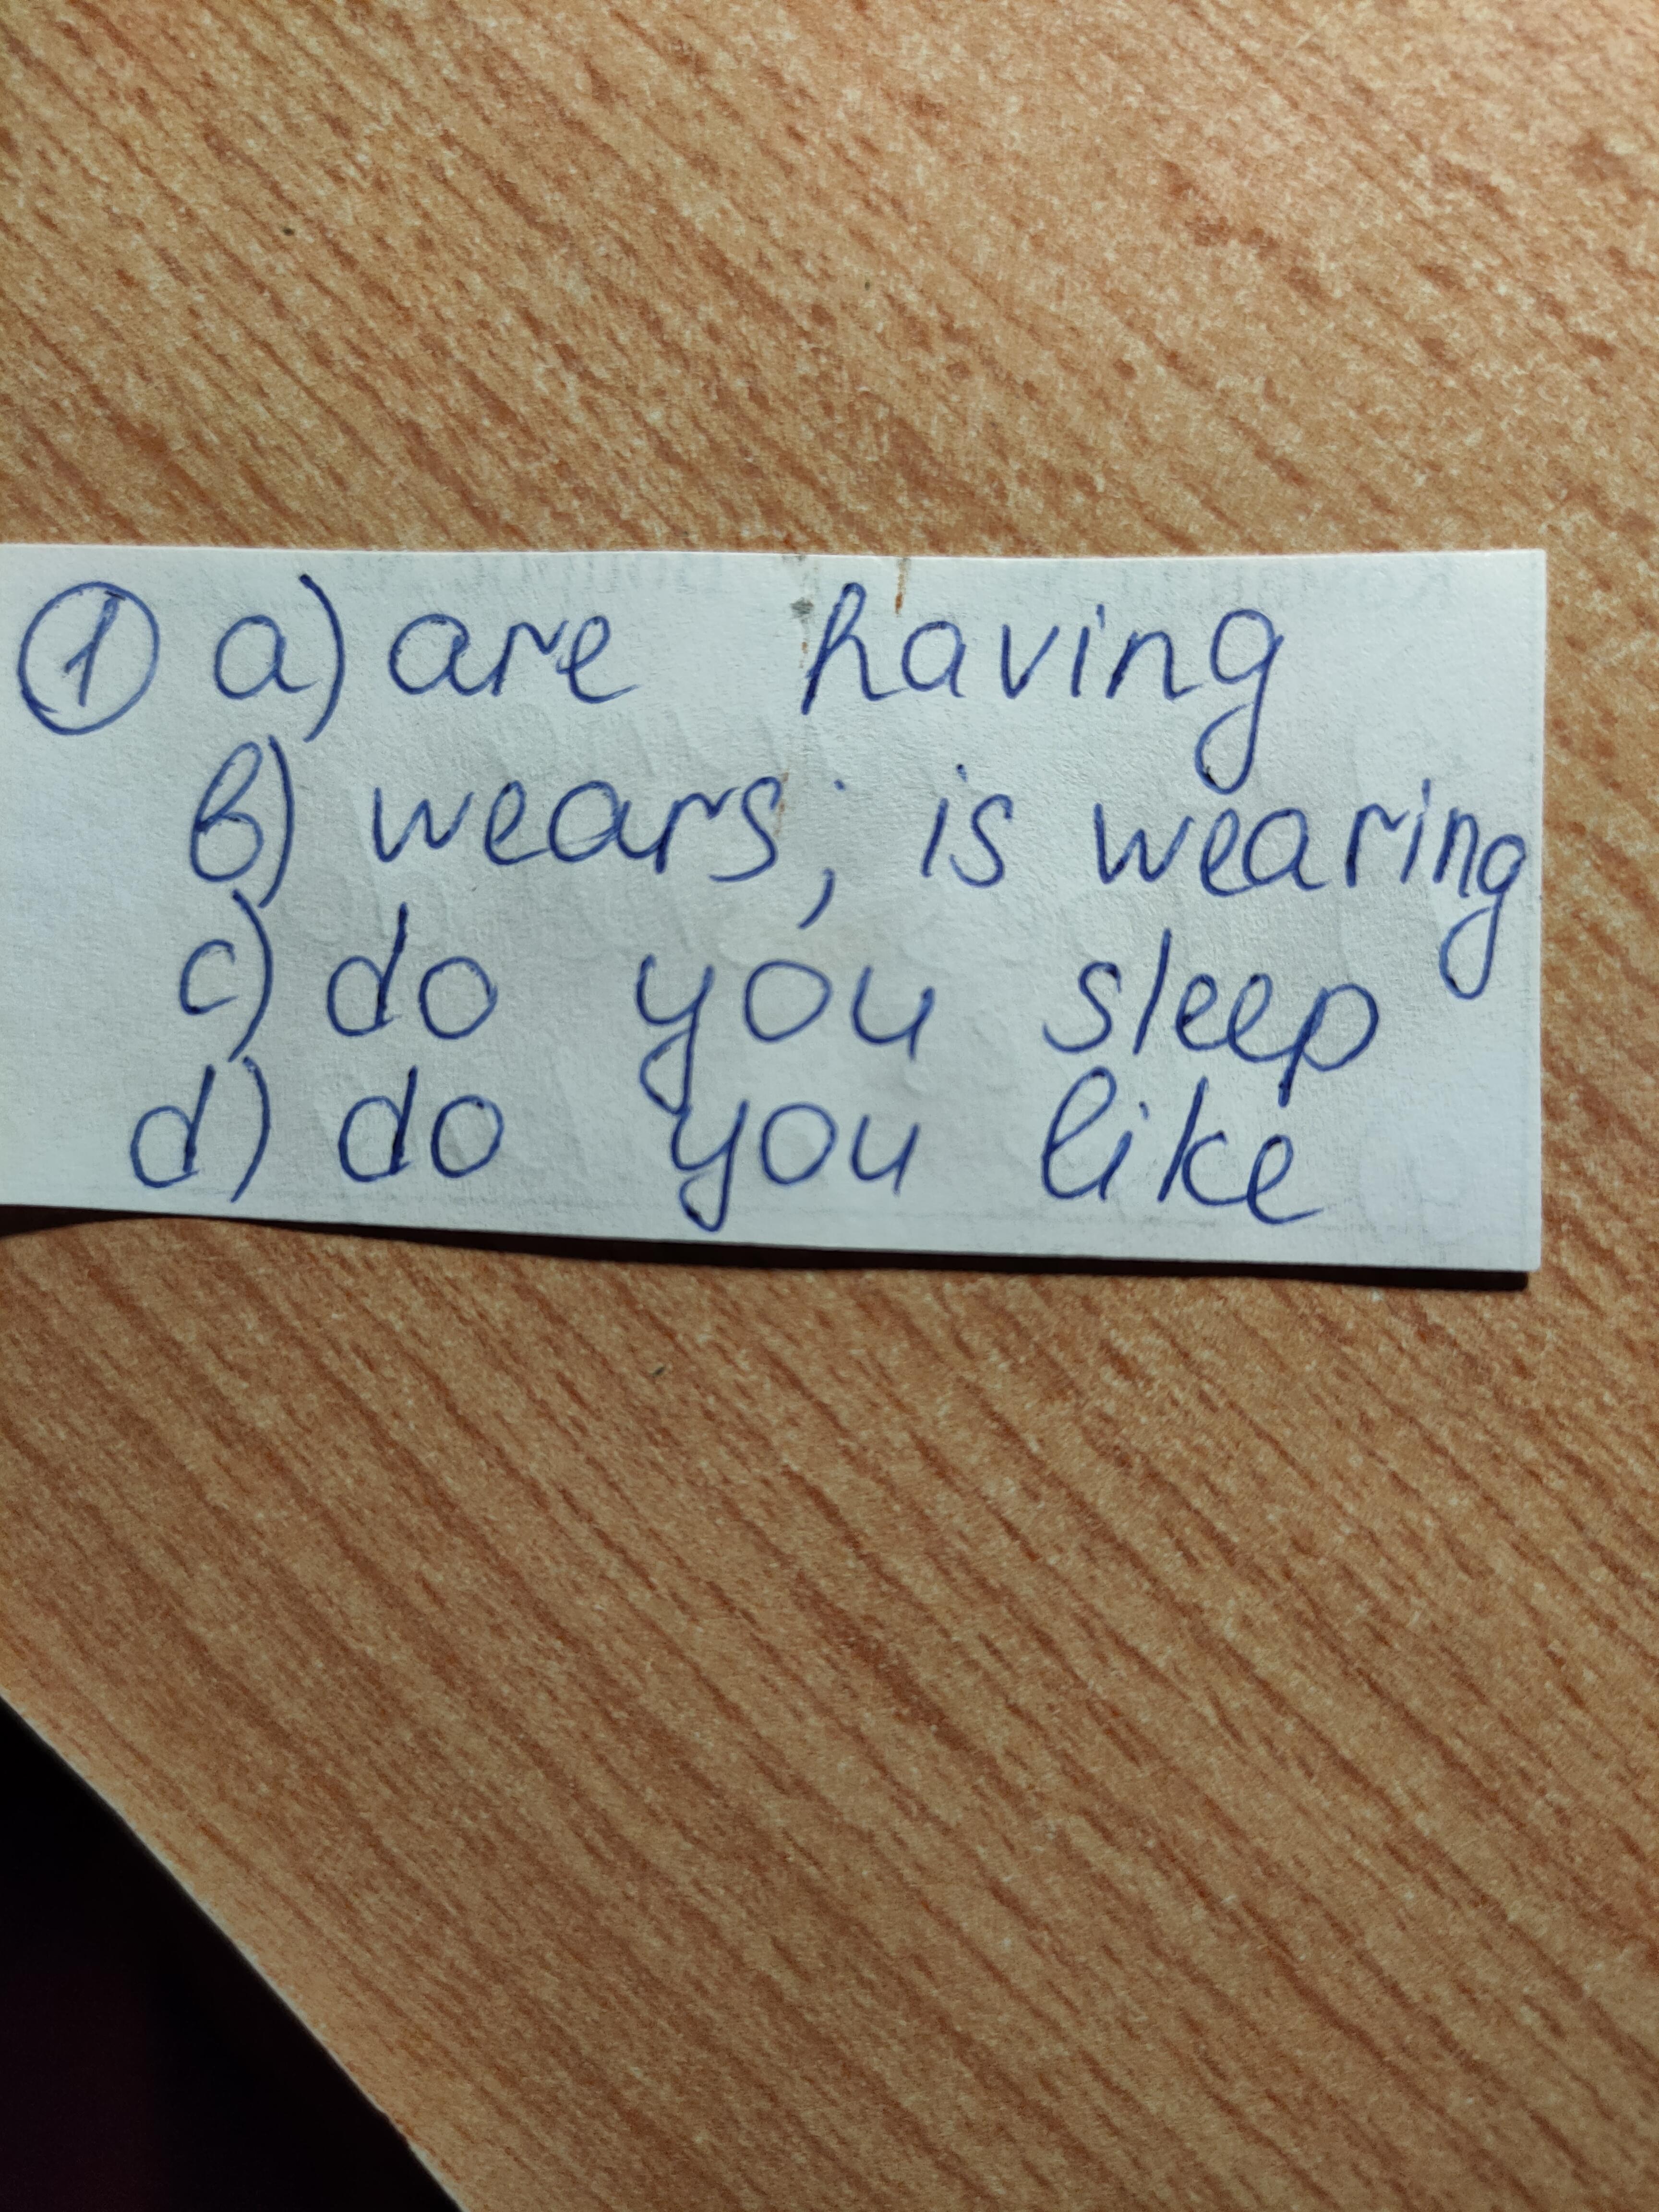 ① a) are having
b) wears; is wearing
c) do you sleep
d) do you like